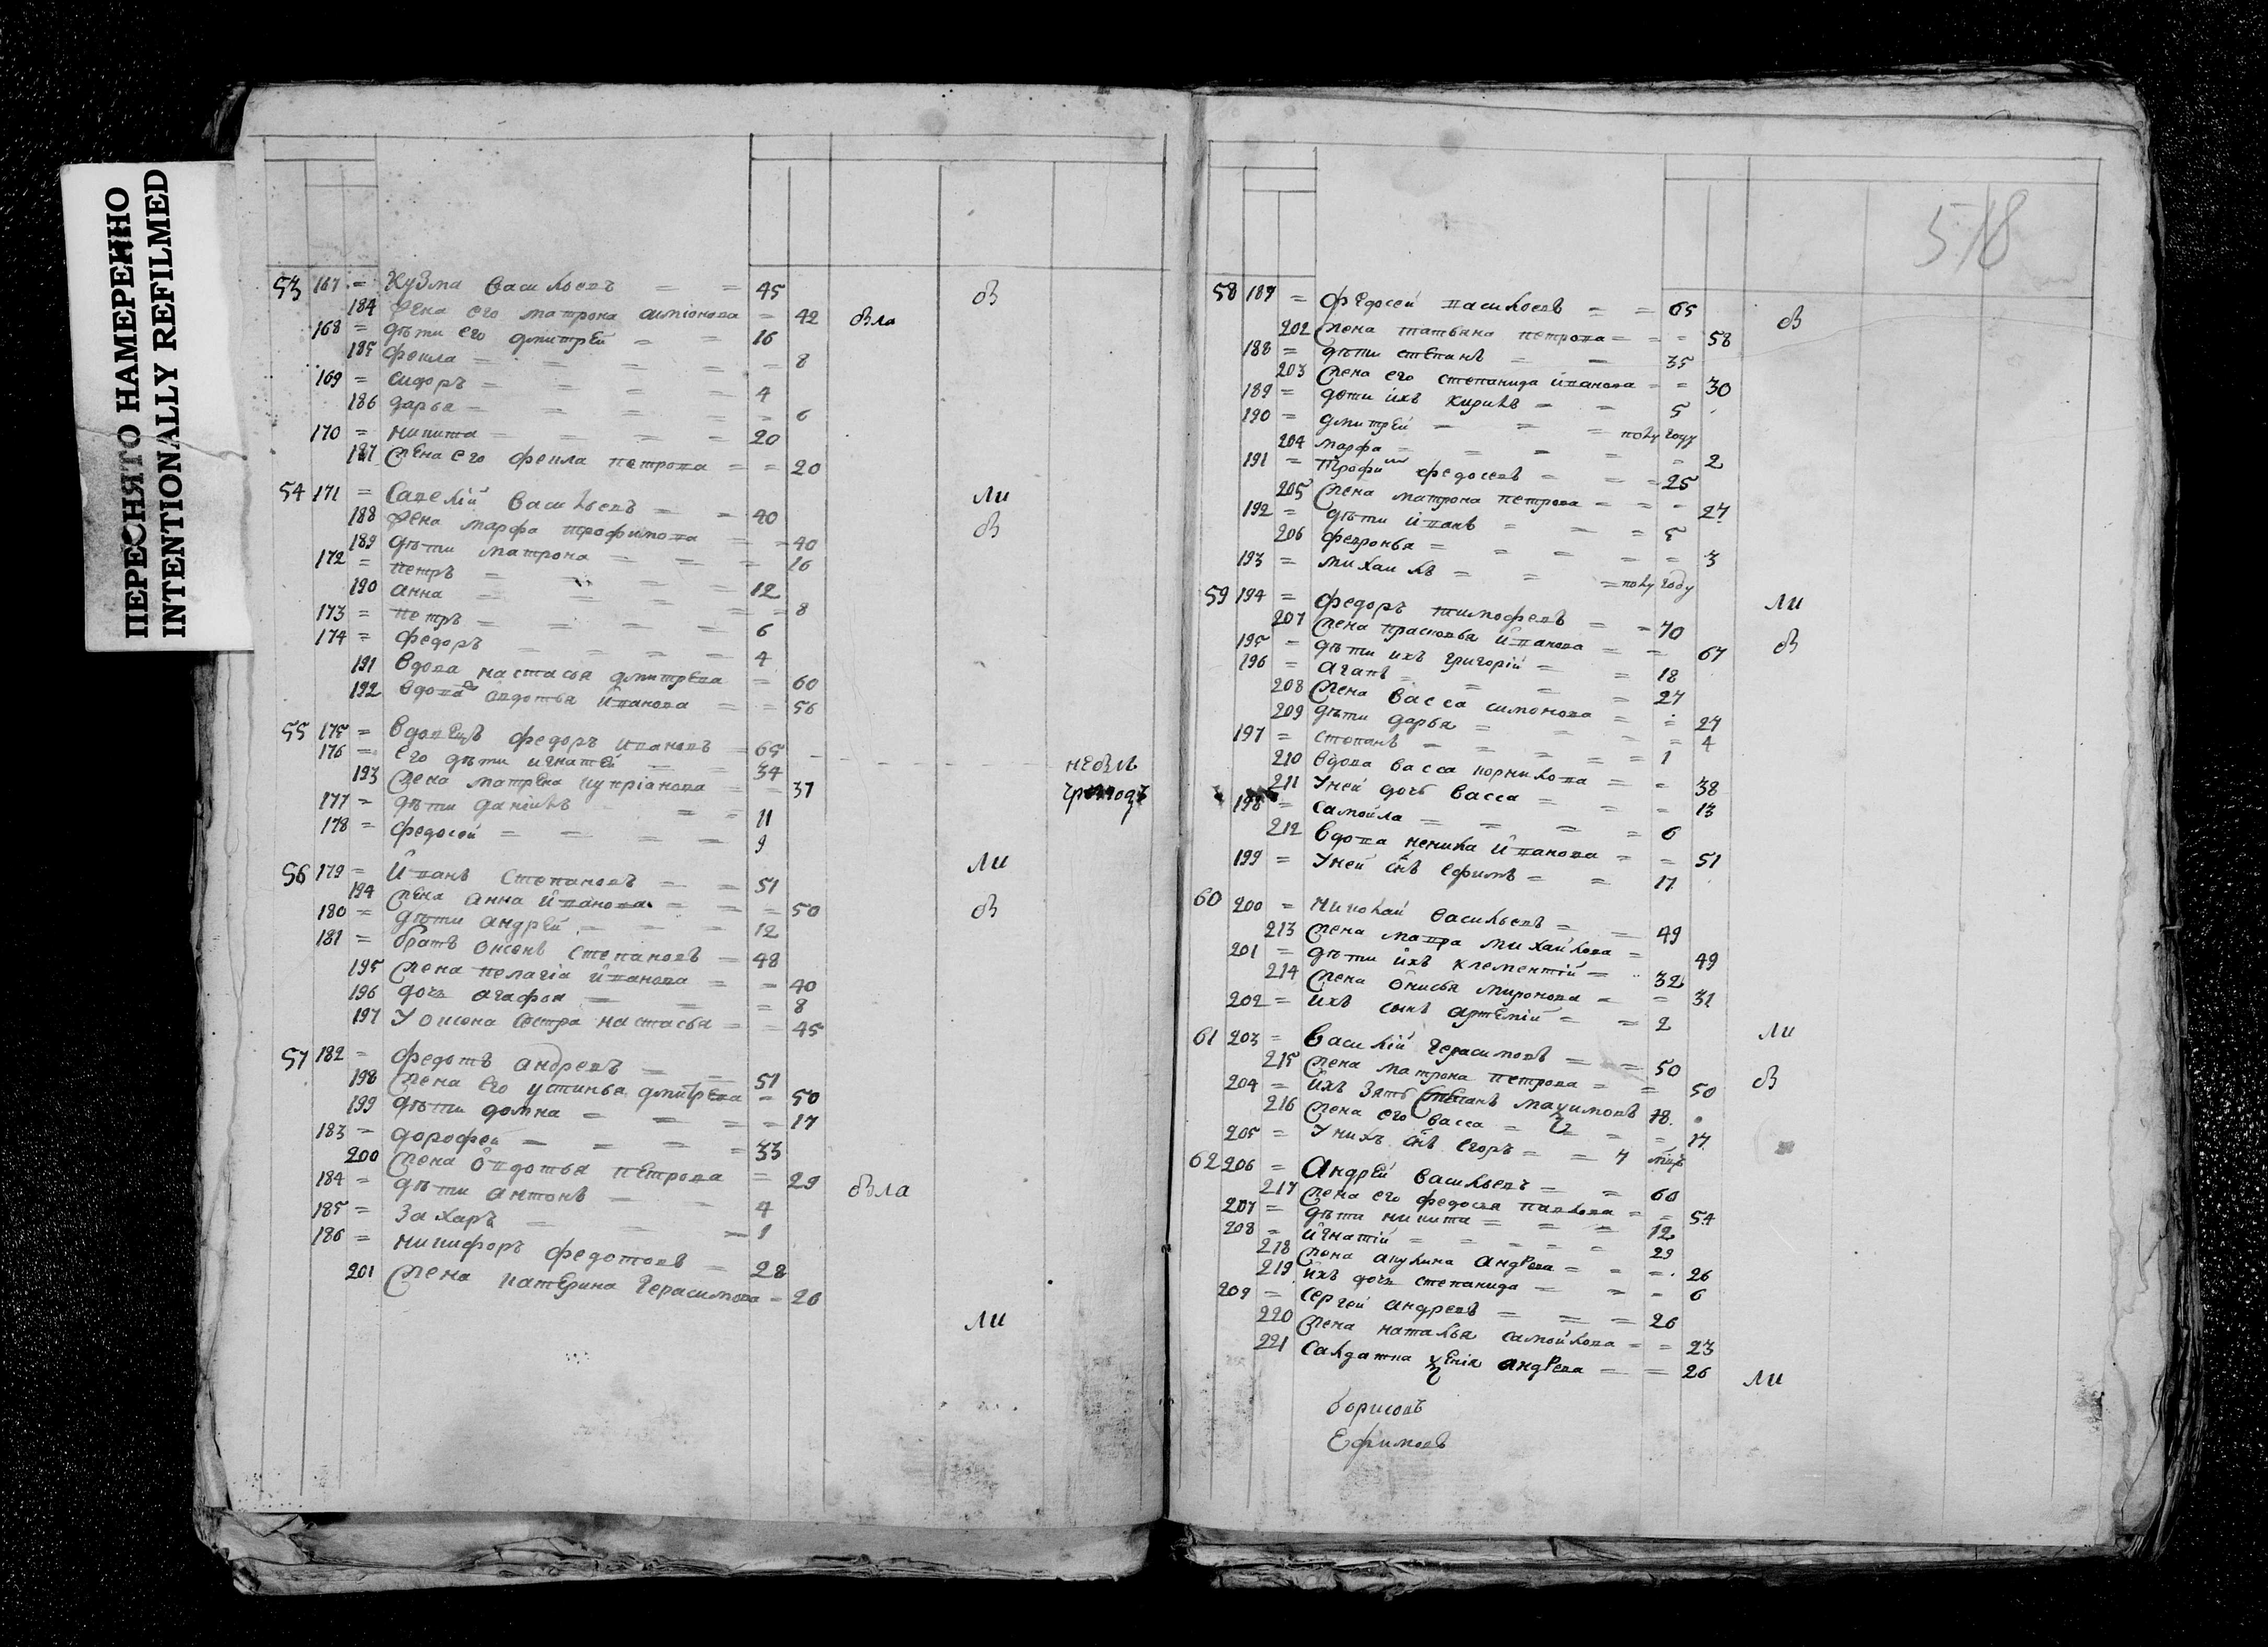 ПЕРЕСНЯТО НАМЕРЕННО
INTENTIONALLY REFILMED
53 167 = Кузма Васильевъ = = 45
184 Жена его матрона симіонова = 42
168 = дѣти его дмитрей = = 16
185 фекла = = = = 8
169 = сидоръ = = = = 4
186 дарья = = = = 6
170 = никита = = = = 20
187 жена его фекла петрова = = 20
54 171 = Савелій Васильевъ = = 40
188 жена марфа трофимова = = 40
189 дѣти матрона = = = 16
172 = петръ = = = = 12
190 анна = = = = 8
173 = петръ = = = = 6
174 = федоръ = = = = 4
191 вдова настасья дмитрева = 60
192 вдова авдотья иванова = = 56
55 175 = Вдовецъ федоръ ивановъ = 65
176 = его дѣти игнатей = = 34
193 жена матрена купріанова = = 37
177 = дѣти данилъ = = 11
178 = федосей = = = = 9
56 179 = Иванъ степановъ = = 51
194 жена анна иванова = = = 50
180 = дѣти андрей = = = 12
181 = братъ онсонъ степановъ = 48
195 жена пелагіа иванова = = 40
196 дочь агафья = = = 8
197 У онсона сестра настасья = = 45
57 182 = федотъ андревъ = = 51
198 жена его устинья дмитрева = 50
199 дѣти домна = = = = 17
183 = дорофей = = = = 33
200 жена овдотья петрова = 29
184 = дѣти антонъ = = = 4
185 = захаръ = = = 1
186 = никифоръ федотовъ = 28
201 жена катерина герасимова = 26
бз
бзла
ли
бз
небыл
ли
бз
бзла
ли
518
58 187 = федосей васильевъ = = 65
202 жена татьяна петрова = = = 58
188 = дѣти степанъ = = 35
203 жена его степанида иванова = = 30
189 = дѣти ихъ кирилъ = = 5
190 = дмитрей = = = полугоду
204 марфа = = = = = 2
191 = трофим федосеевъ = = = 25
205 жена матрона петрова = = = 27
192 = дѣти иванъ = = = 5
206 февронья = = = = = 3
193 = михаилъ = = = полугоду
59 194 = федоръ тимофеевъ = = 70
207 жена прасковья иванова = = 67
195 = дѣти ихъ григорій = = 18
196 = агапъ = = = = 27
208 жена васса симонова = = 27
209 дѣти дарья = = = = 4
197 = степанъ = = = = = 1
210 вдова васса корнилова = = 38
211 Уней дочь васса = = = 13
198 = самойла = = = = 6
212 вдова ненила иванова = = 51
199 = Уней снъ ефимъ = = 17
60 200 = николай васильевъ = = 49
213 жена мавра михайлова = 49
201 = дѣти ихъ клементій = = 32
214 жена онисья миронова = = 31
202 = ихъ сынъ артемій = = 2
61 203 = Василій герасимовъ = = 50
215 жена матрона петрова = = 50
204 = ихъ зять степанъ маѯимовъ 18
216 жена его васса = = = = 17
205 = Унихъ снъ егоръ = = 7
62 206 = Андрей васильевъ = = 60
217 жена его федосья павлова = = 54
207 = дѣти никита = = = 12
208 = игнатій = = = = = 29
218 жена акулина андрева = = = 26
219 ихъ дочь степанида = = = 6
209 = сергей андревъ = = = 26
220 жена наталья самойлова = = 23
221 салдатка ѯенія андрева = = 26
бз
ли
бз
ли
бз
ли
борисовъ
Ефимовъ